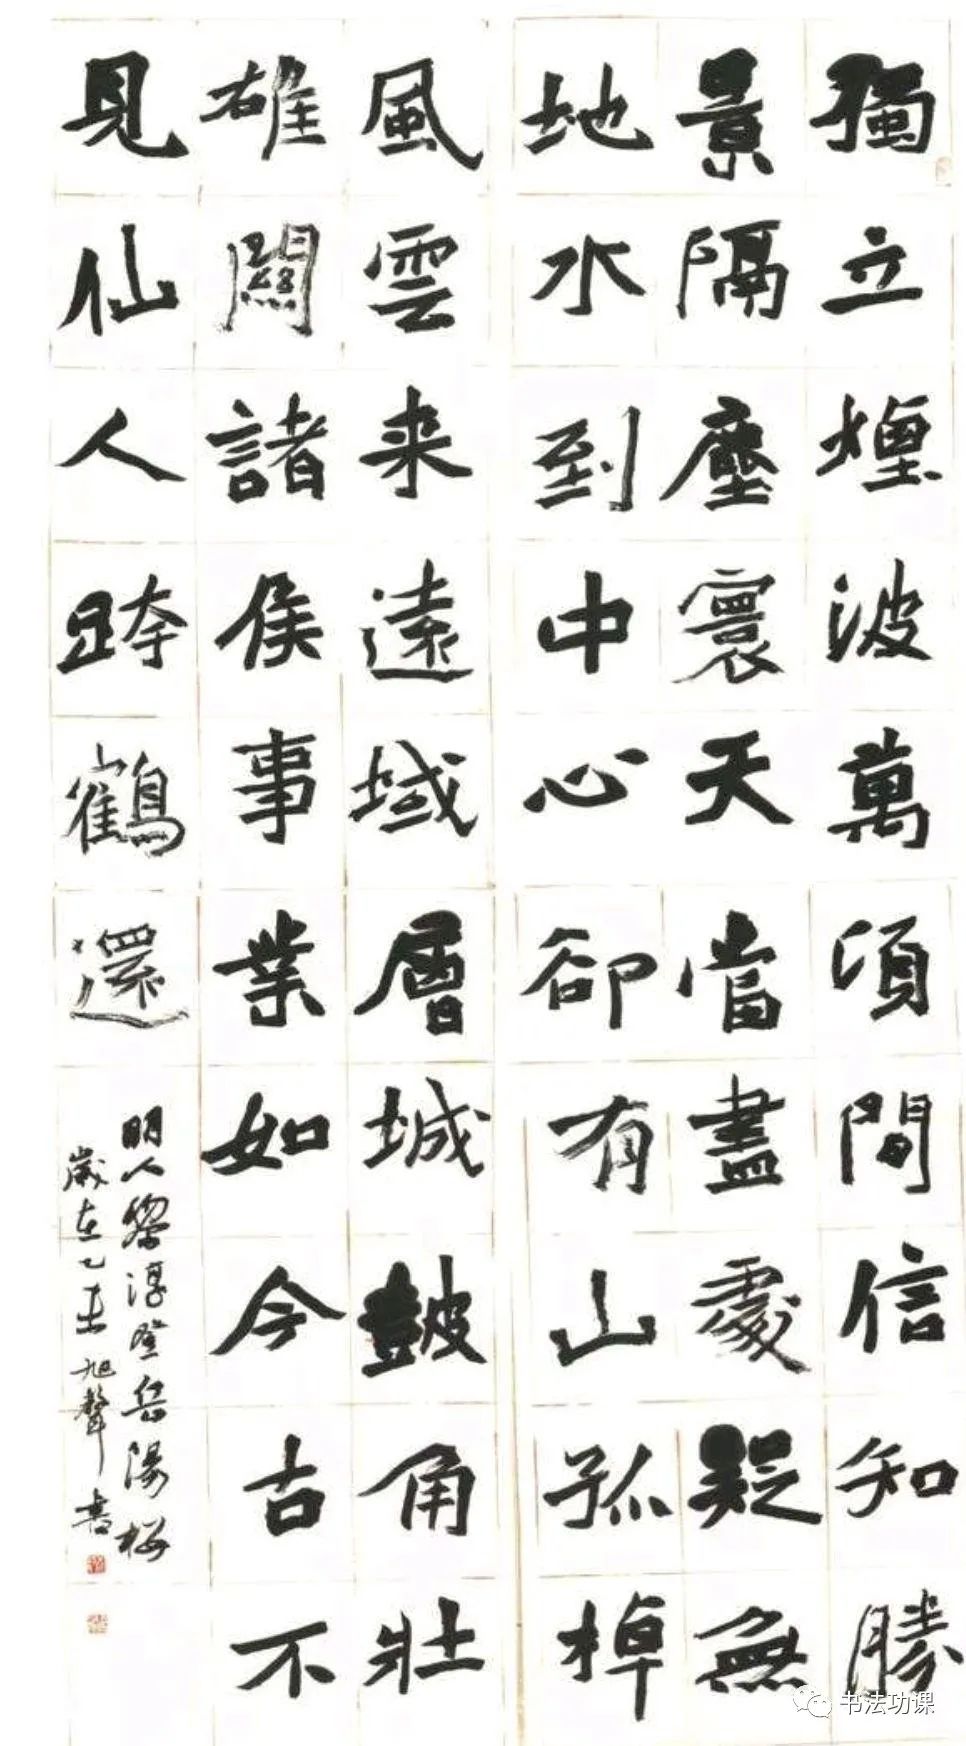 獨立煙波萬頃間信知勝
景隔塵寰天當盡處疑無
地水到中心卻有山孤棹
風雲来遠域層城鼓角壯
雄關諸侯事業如今古不
見仙人跨鶴還
明人黎淳登岳陽樓
歲在乙未旭聲書
书法功课